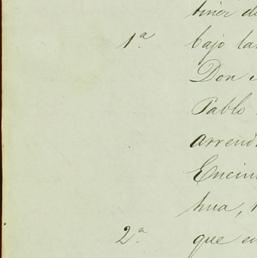 1ª bajo la
Don
Pablo
arrend
Encin
hua,
2ª que